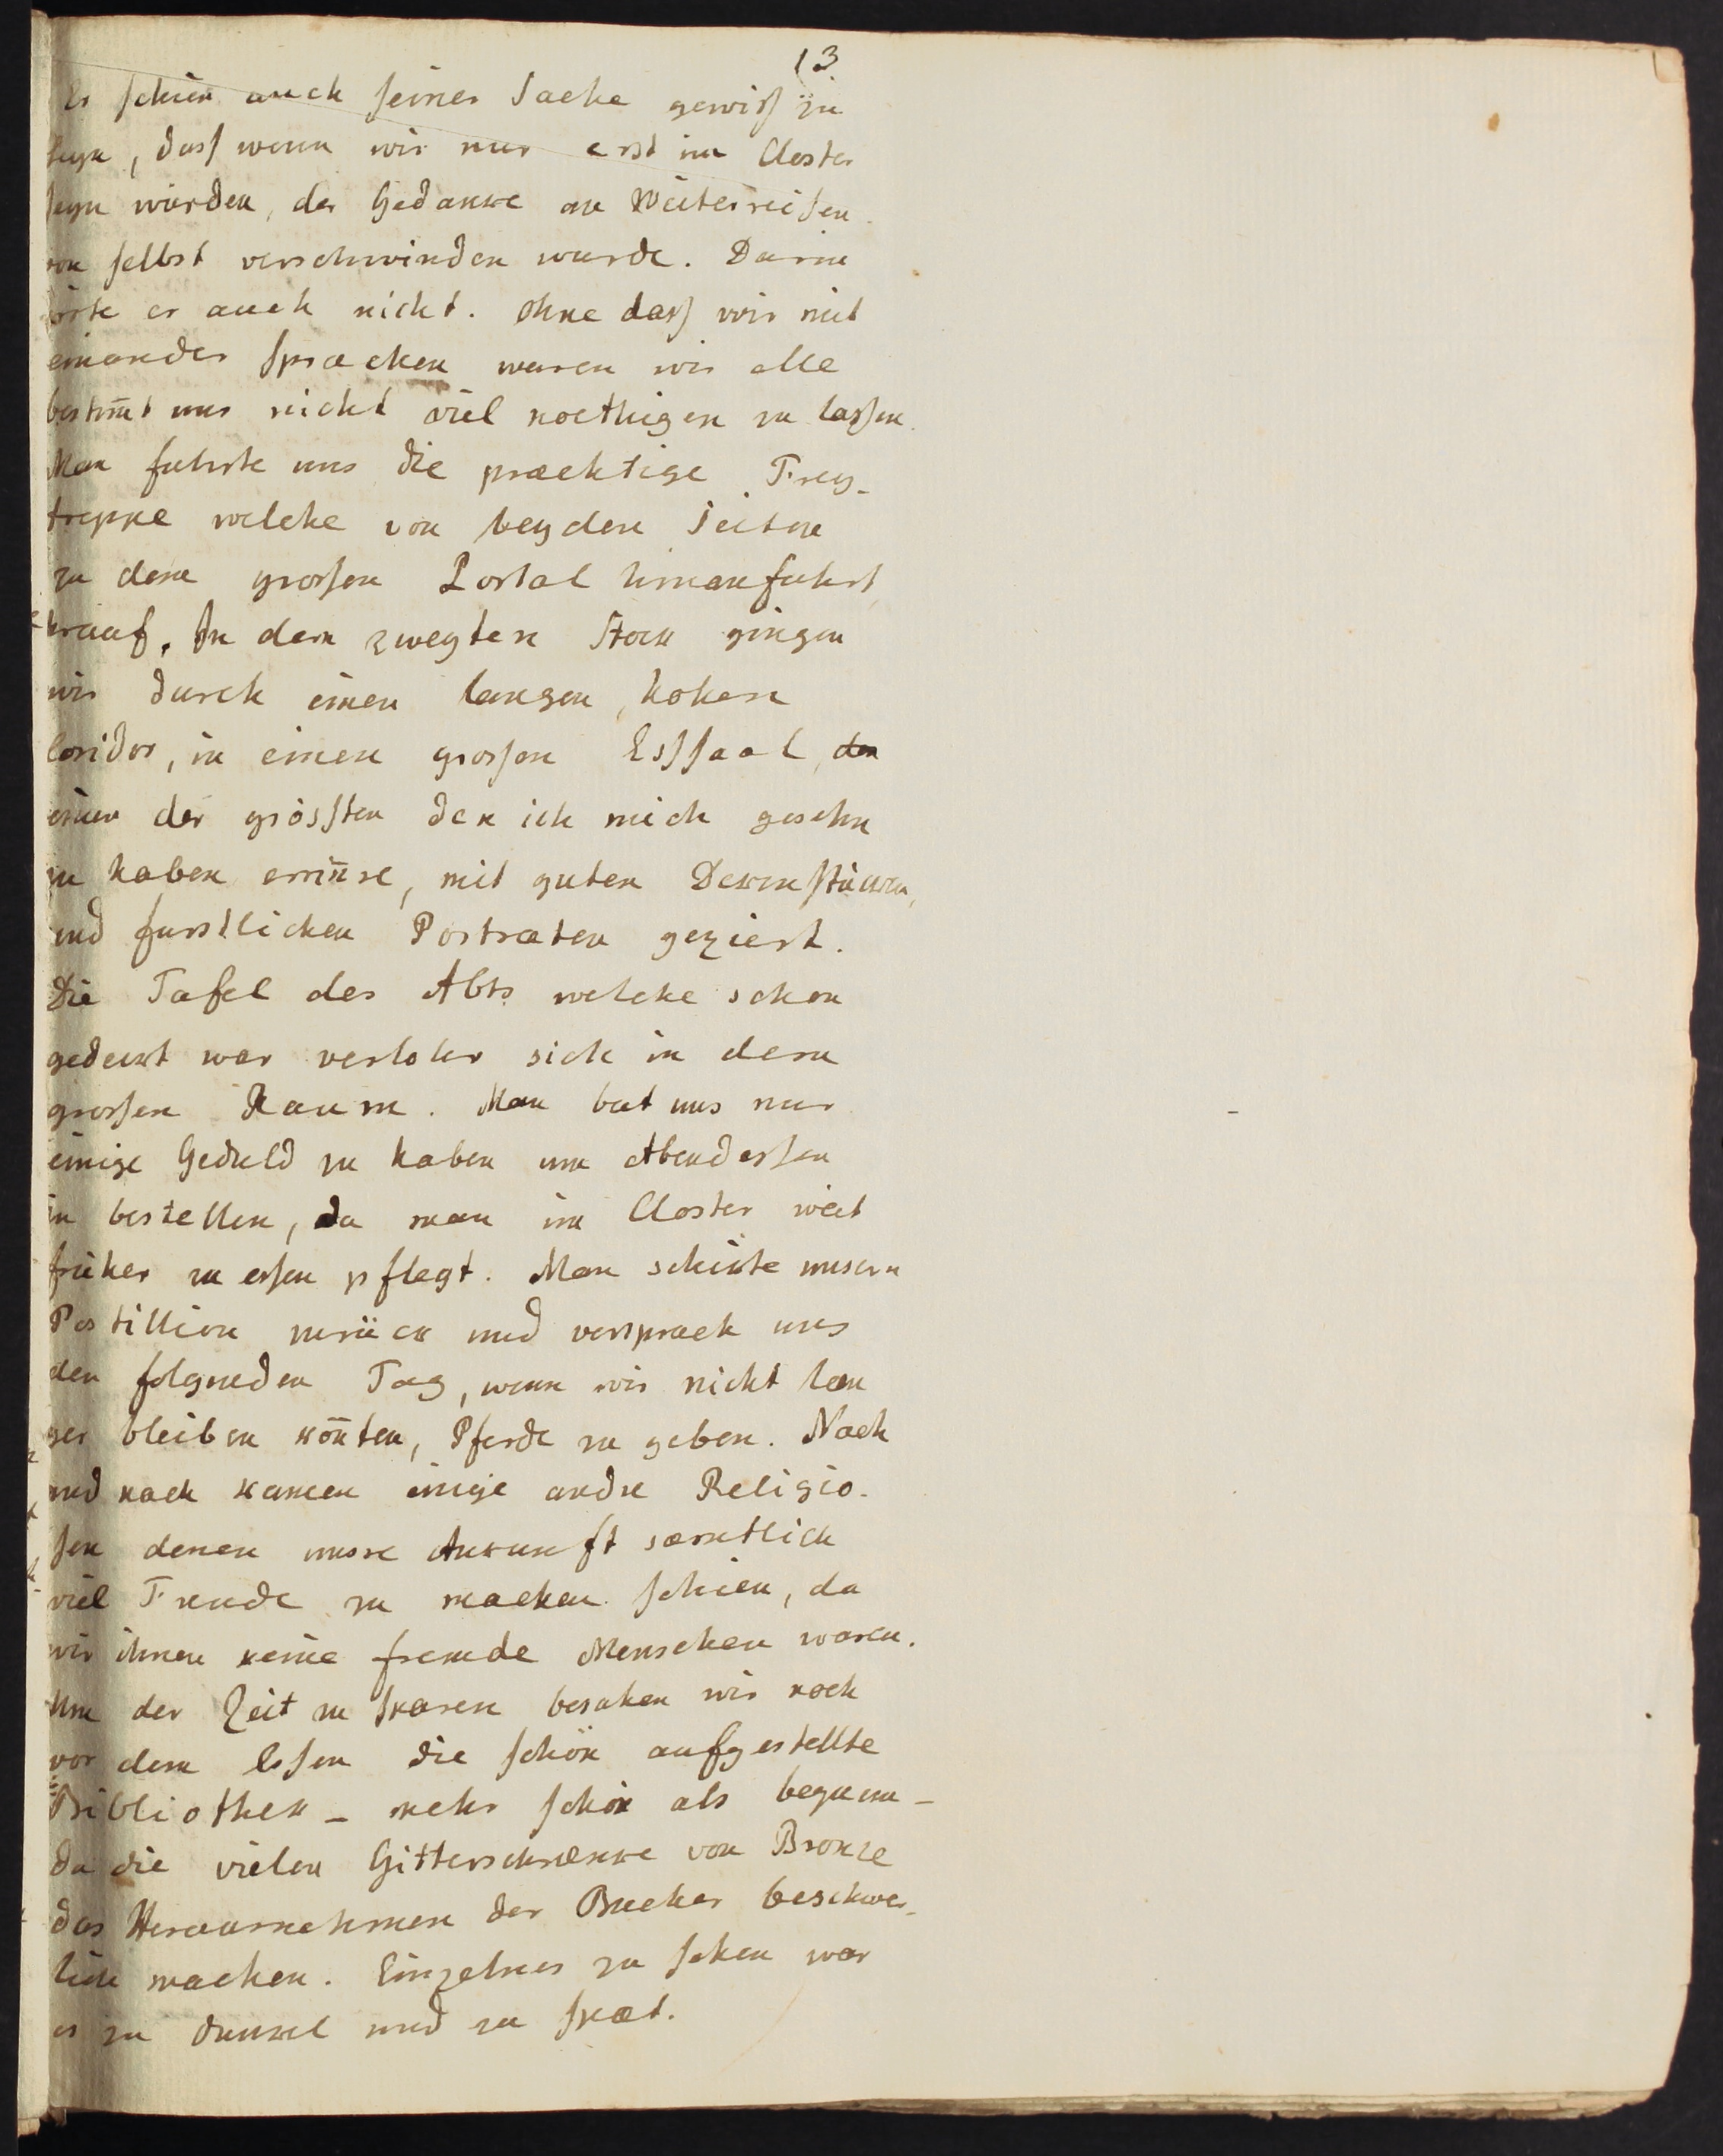 13
Er schien auch seiner Sache gewiß zu
seyn, dass wenn wir nur erst im Closter
seyn würden, der Gedanke an Weiterreisen
von selbst verschwinden wurde. Darin
irrte er auch nicht. Ohne dass wir mit
einander sprachen waren wir alle
bestim̄t uns nicht viel noethigen zu lassen.
Man fuhrte uns die praechtige Frey-
treppe welche von beyden Seiten
zu dem grossen Portal hinanfuhrt
herauf. In dem zweyten Stock gingen
wir durch einen langen, hohen
Coridor, in einen grossen Esssaal, den
einer der grössten den ich mich gesehn
zu haben erin̄re, mit guten Dekenstücken,
und furstlichen Portraten geziert.
Die Tafel des Abts welche schon
gedekt war verlohr sich in dem
grossen Raum. Man bat uns nur
einige Geduld zu haben um Abendessen
zu bestellen, da man im Closter weit
früher zu essen pflegt. Man schikte unsern
Postillion zurück und versprach uns
den folgneden Tag, wenn wir nicht laen
ger bleiben kön̄ten, Pferde zu geben. Nach
und nach kamen einige andre Religio-
sen denen unsre Ankunft saemtlich
viel Freude zu machen schien, da
wir ihnen keine fremde Menschen waren.
Um der Zeit zu sparen besahen wir noch
vor dem Essen die schön aufgestellte
Bibliothek – mehr schön als bequem –
da die vielen Gitterschraenke von Bronze
das Herausnehmen der Bucher beschwer-
lich machen. Einzelnes zu sehen war
es zu dunkel und zu spaet.